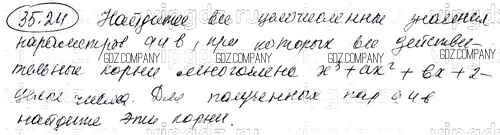 35.24 Найдите все целочисленные значения
параметров a и b, при которых все действи-
тельные корни многочлена x³ + ax² + bx + 2 -
целые числа. Для полученных пар a и b
найдите эти корни.
GDZ.COMPANY GDZ.COMPANY GDZ.COMPANY